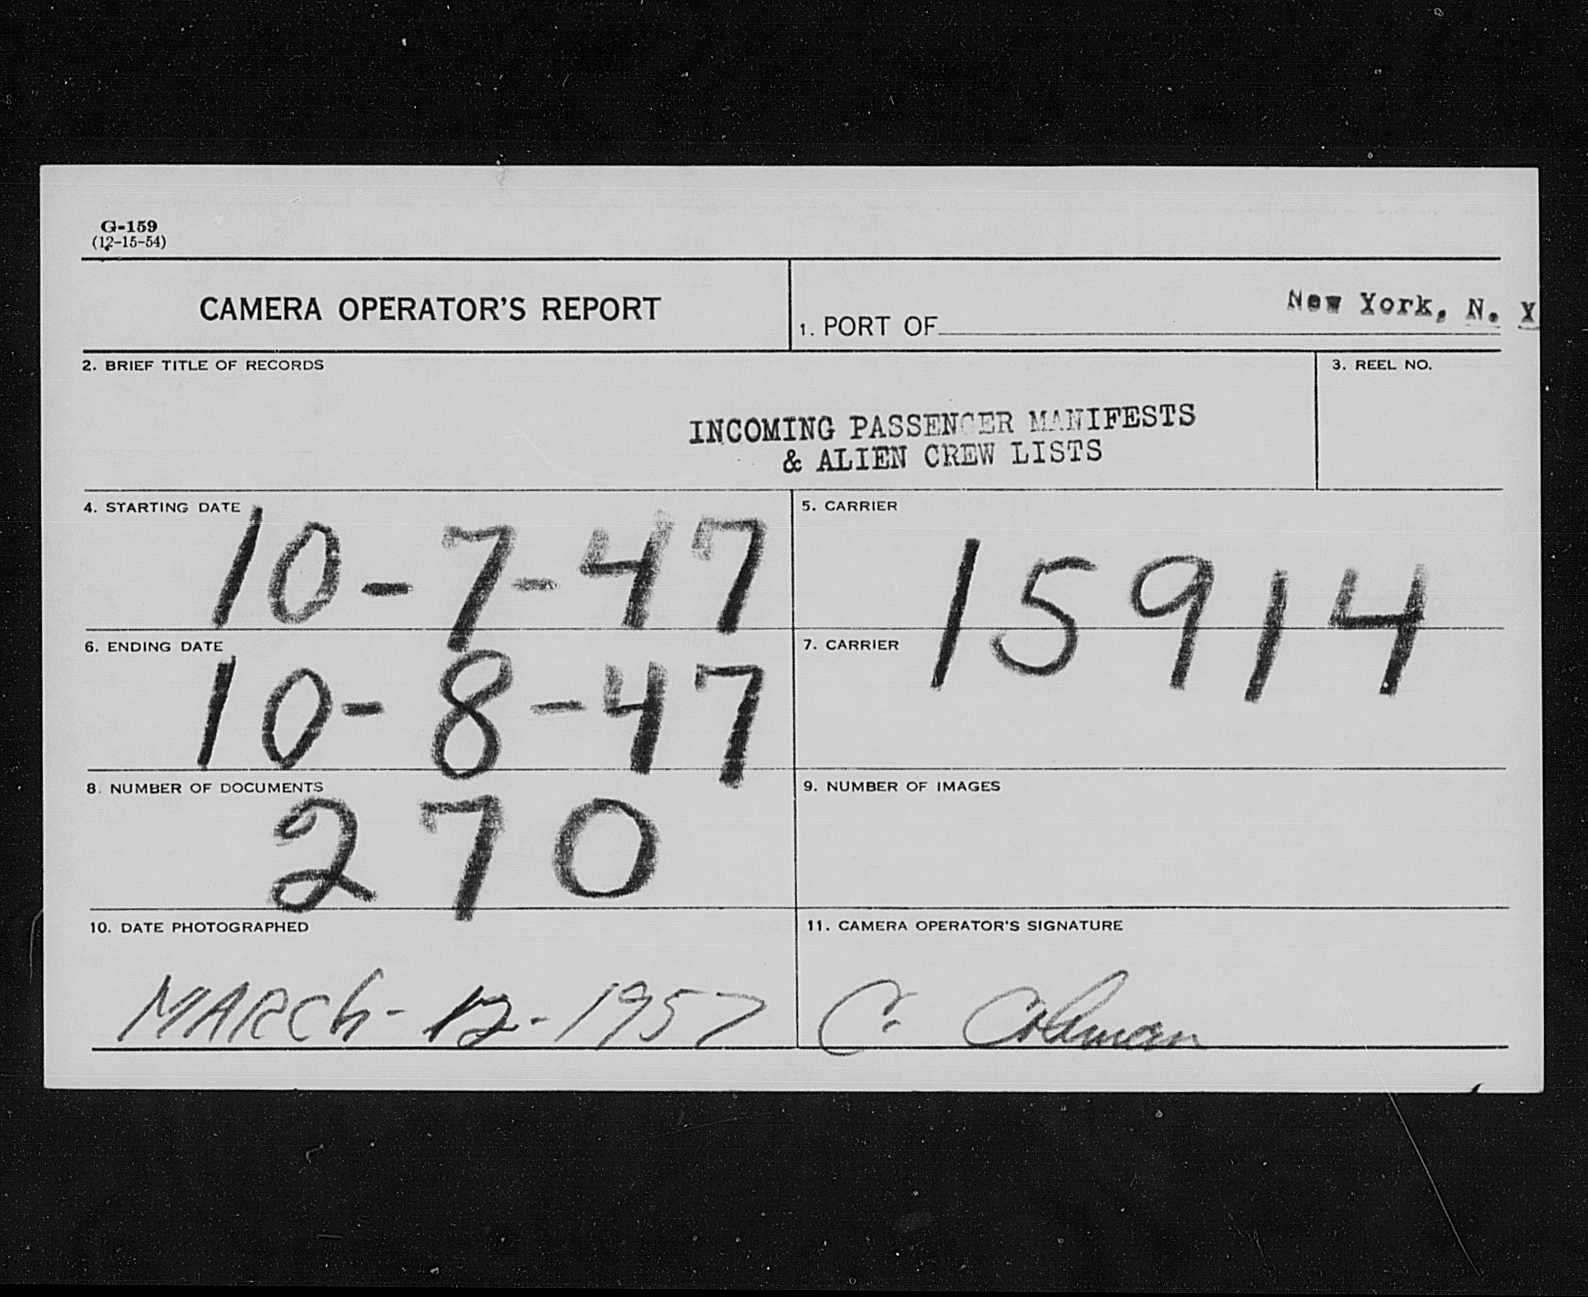 G-159
(12-15-54)
CAMERA OPERATOR'S REPORT
1. PORT OF New York, N. Y
2. BRIEF TITLE OF RECORDS
INCOMING PASSENGER MANIFESTS
& ALIEN CREW LISTS
3. REEL NO.
4. STARTING DATE
10-7-47
5. CARRIER
15914
6. ENDING DATE
10-8-47
7. CARRIER
8. NUMBER OF DOCUMENTS
270
9. NUMBER OF IMAGES
10. DATE PHOTOGRAPHED
MARCh-12-1957
11. CAMERA OPERATOR'S SIGNATURE
C.